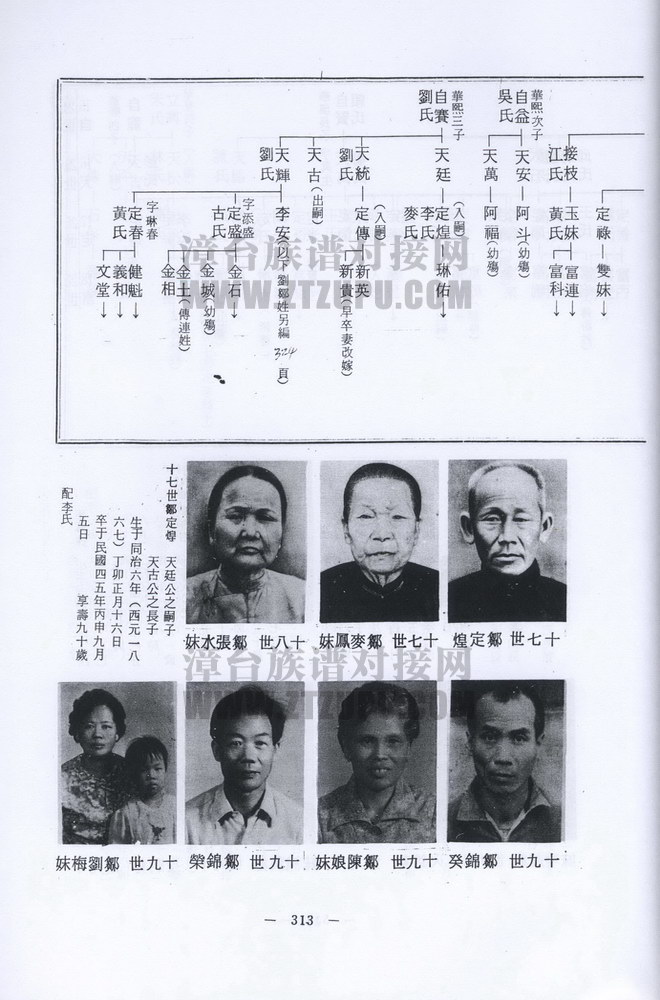 定祿
雙妹
接枝
江氏
玉妹
黃氏
冨連
富科
華熙次子
自益
吳氏
天安
阿斗(幼殤)
天萬
阿福(幼殤)
華熙三子
自賽
劉氏
天廷
(入嗣)
定煌
李氏
麥氏
琳佑
天統
劉氏
(入嗣)
定傳
新英
新貴(早卒妻改嫁)
天古(出嗣)
天輝
劉氏
李安(以下劉鄒姓另編324頁)
字添盛
定盛
古氏
金石
金城(幼殤)
金土(傳連姓)
金相
字琳春
定春
黃氏
健魁
義和
文堂
漳台族谱对接网
WWW.ZTZUPU.COM
十七世鄒定煌 天廷公之嗣子
天古公之長子
生于同治六年(西元一八
六七)丁卯正月十六日
卒于民國四五年丙申九月
五日 享壽九十歲
配李氏
十七世 鄒定煌
十七世 鄒麥鳳妹
十八世 鄒張水妹
漳台族谱对接网
WWW.ZTZUPU.COM
十九世 鄒錦癸
十九世 鄒陳娘妹
十九世 鄒錦榮
十九世 鄒劉梅妹
— 313 —